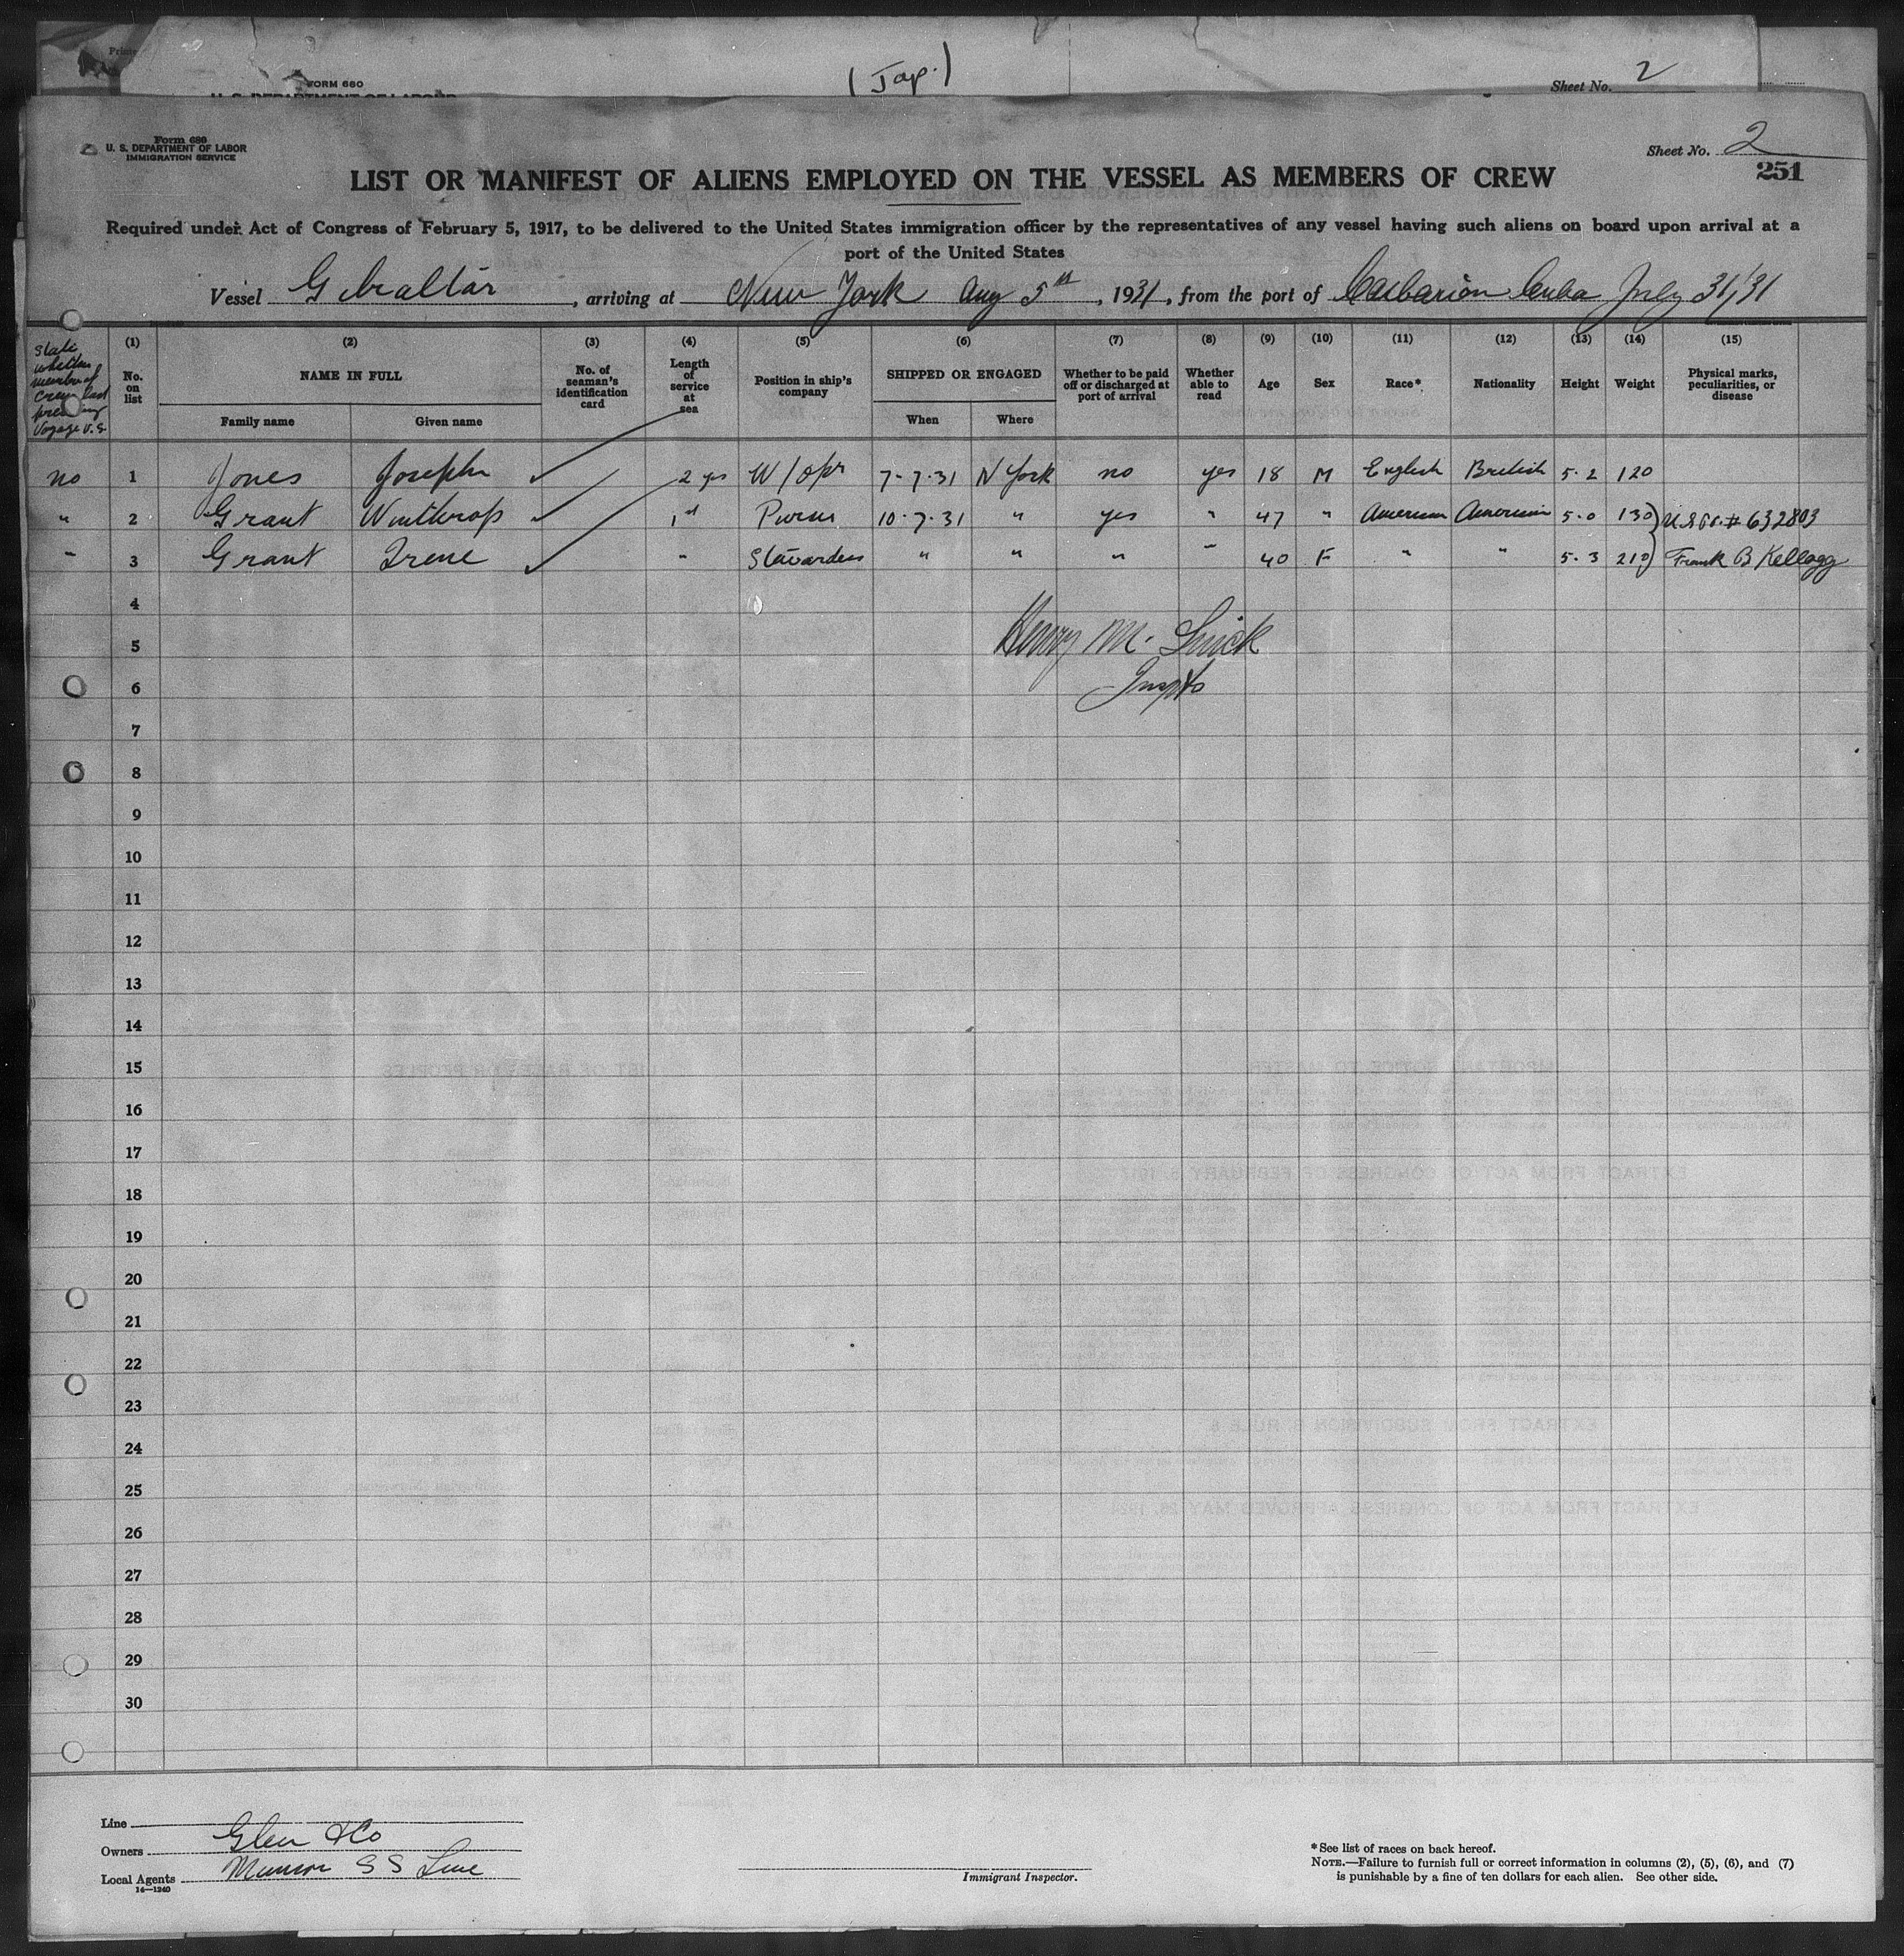 FORM 680
( Jap. )
Sheet No. 2
Form 680
U. S. DEPARTMENT OF LABOR
IMMIGRATION SERVICE
Sheet No. 2
251
LIST OR MANIFEST OF ALIENS EMPLOYED ON THE VESSEL AS MEMBERS OF CREW
Required under Act of Congress of February 5, 1917, to be delivered to the United States immigration officer by the representatives of any vessel having such aliens on board upon arrival at a
port of the United States
Vessel Gibraltar, arriving at New York Aug 5th, 1931, from the port of Caibarien Cuba July 31/31
State whether member of crew last preceding Voyage U.S.
(1) No. on list
(2) NAME IN FULL
Family name Given name
(3) No. of seaman's identification card
(4) Length of service at sea
(5) Position in ship's company
(6) SHIPPED OR ENGAGED
When Where
(7) Whether to be paid off or discharged at port of arrival
(8) Whether able to read
(9) Age
(10) Sex
(11) Race*
(12) Nationality
(13) Height
(14) Weight
(15) Physical marks, peculiarities, or disease
no 1 Jones Joseph ✓ 2 yrs W/opr 7-7-31 N York no yes 18 M English British 5-2 120
" 2 Grant Winthrop ✓ Purser 10-7-31 " yes " 47 " American American 5-0 130 # 632803
" 3 Grant Irene ✓ " Stewardess " " " " 40 F " " 5-3 210 Frank B Kellogg
4
5
Henry M.
6
7
8
9
10
11
12
13
14
15
16
17
18
19
20
21
22
23
24
25
26
27
28
29
30
Line
Owners Glen & Co
Local Agents Munson S S Line
14—1240
Immigrant Inspector.
*See list of races on back hereof.
NOTE.—Failure to furnish full or correct information in columns (2), (5), (6), and (7)
is punishable by a fine of ten dollars for each alien. See other side.